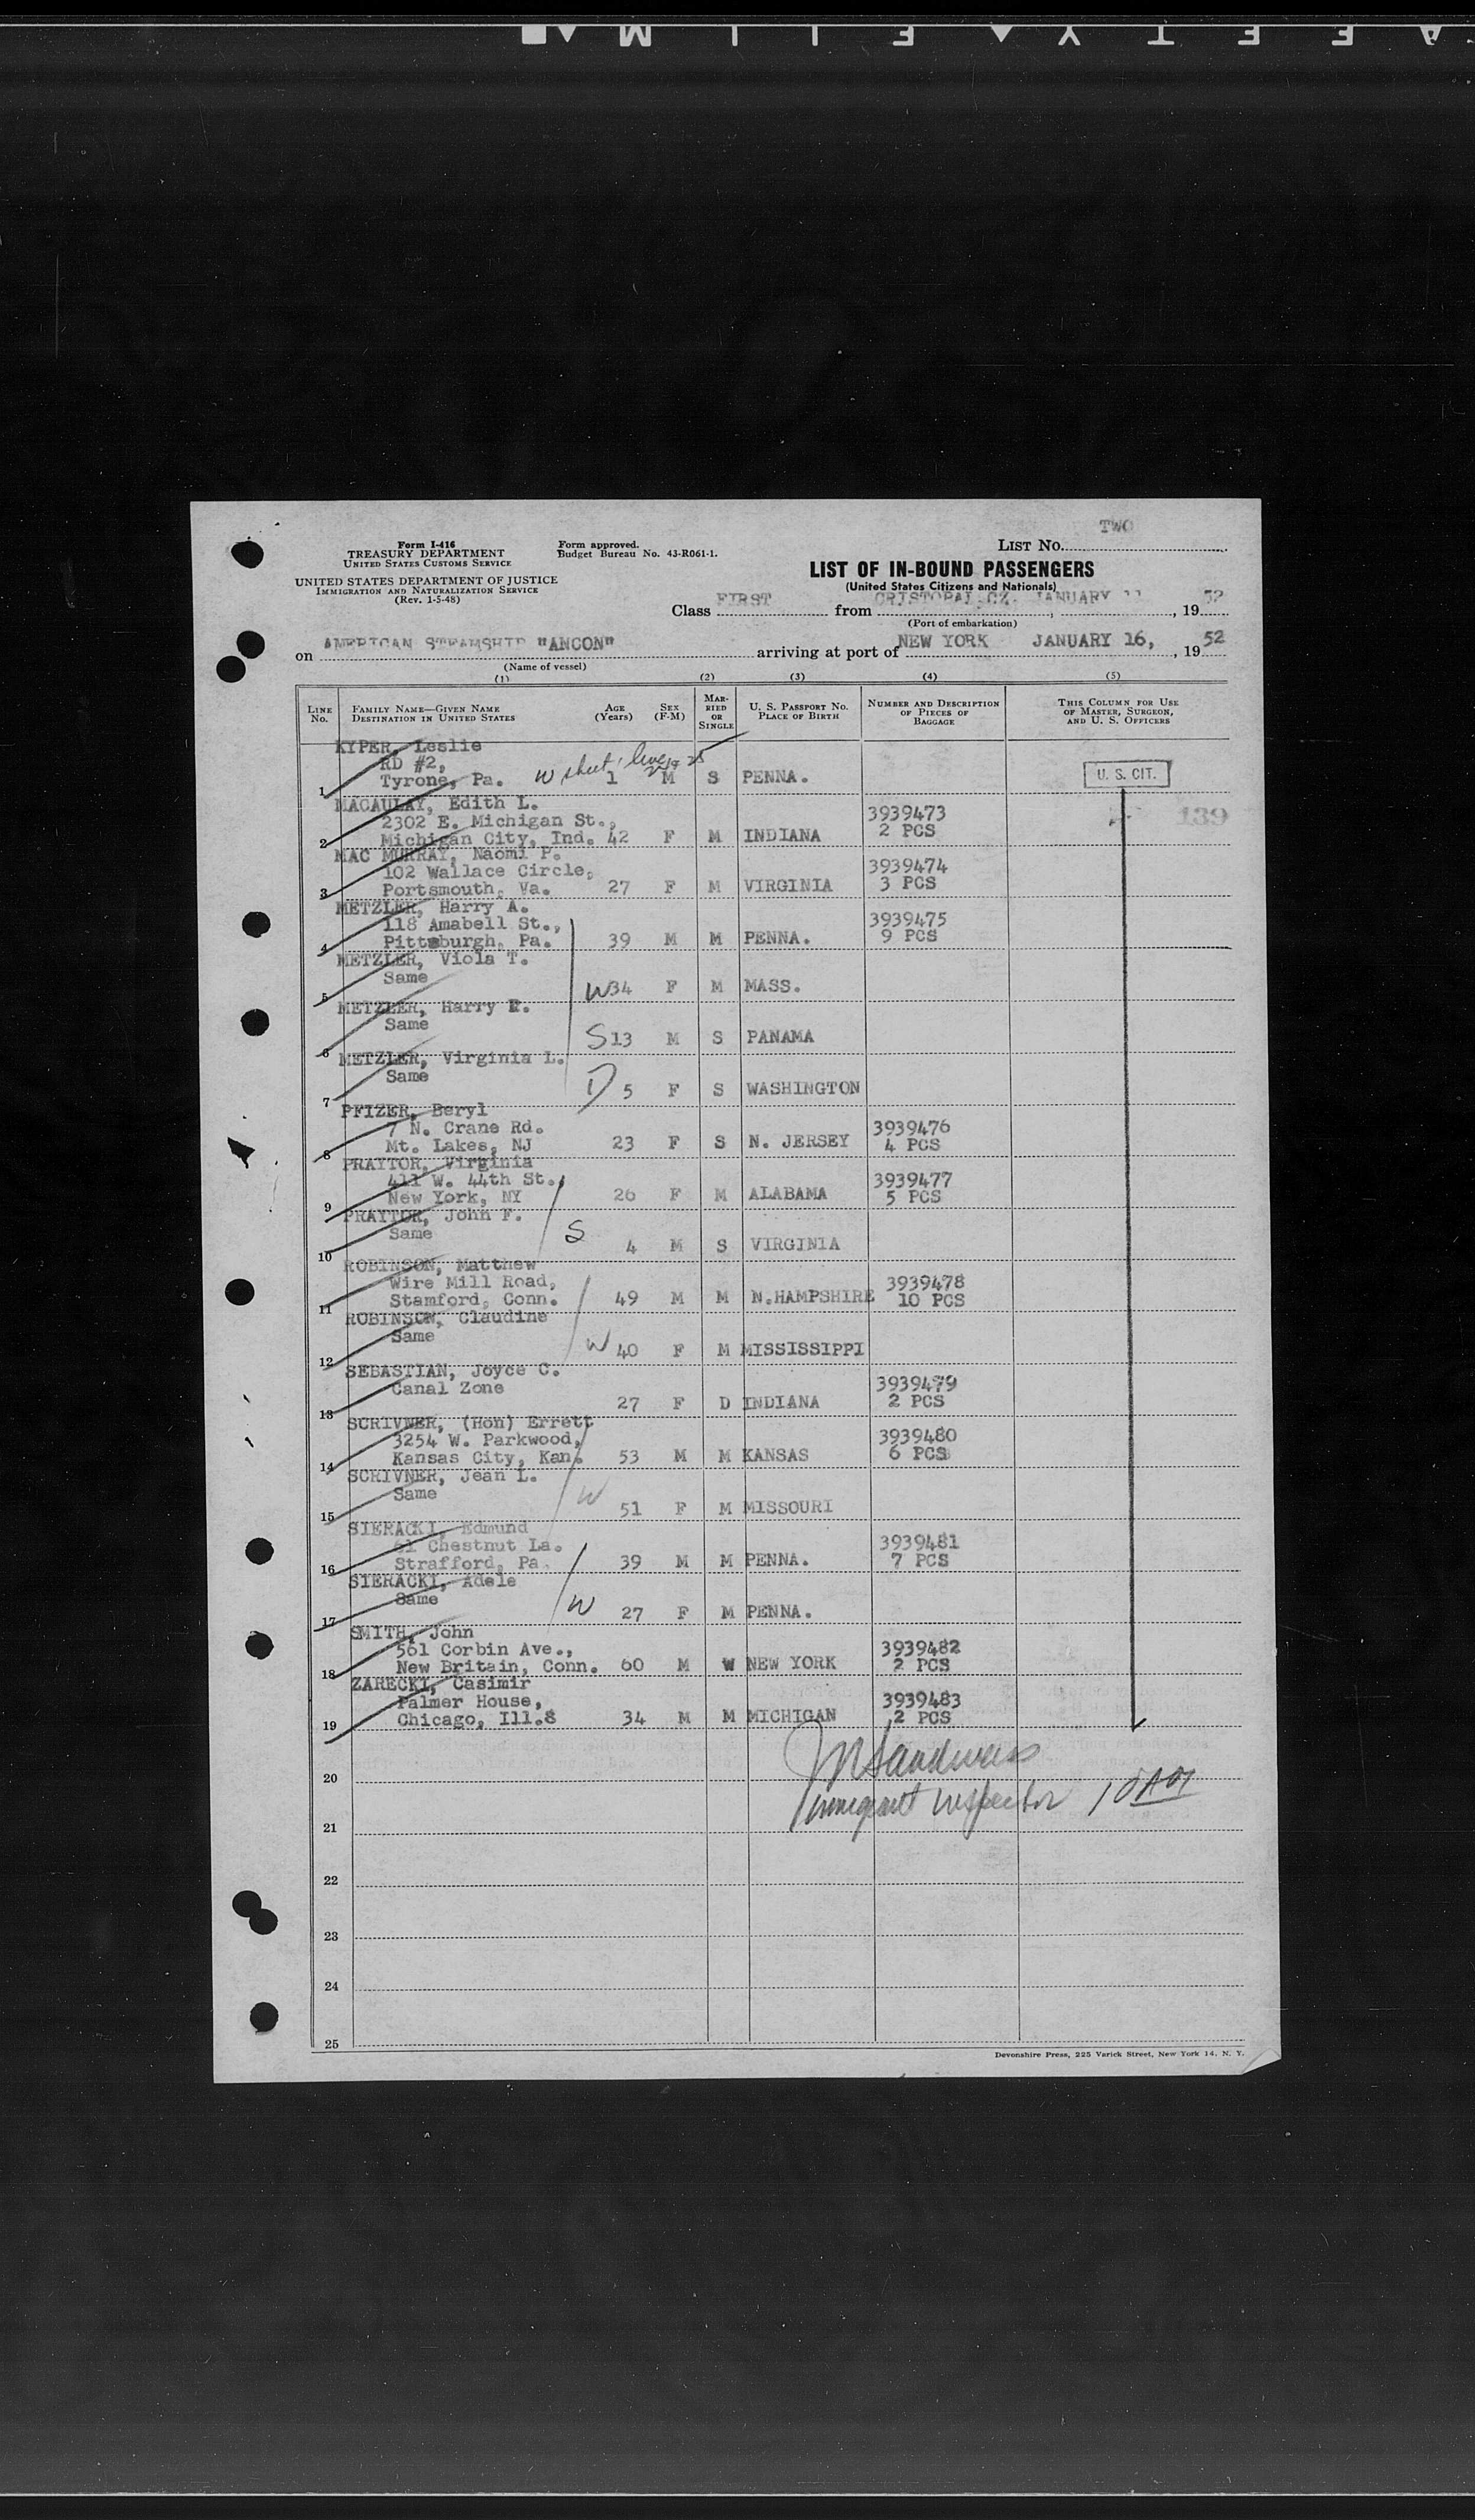 SAFETY FILM
TWO
Form I-416
TREASURY DEPARTMENT
UNITED STATES CUSTOMS SERVICE
UNITED STATES DEPARTMENT OF JUSTICE
IMMIGRATION AND NATURALIZATION SERVICE
(Rev. 1-5-48)
Form approved.
Budget Bureau No. 43-R061-1.
LIST NO.
LIST OF IN-BOUND PASSENGERS
(United States Citizens and Nationals)
Class FIRST from CRISTOBAL, CZ. JANUARY 11, 1952
(Port of embarkation)
on AMERICAN STEAMSHIP "ANCON" arriving at port of NEW YORK JANUARY 16, 1952
(Name of vessel)
(1) (2) (3) (4) (5)
LINE NO. FAMILY NAME—GIVEN NAME DESTINATION IN UNITED STATES AGE (YEARS) SEX (F-M) MARRIED OR SINGLE U. S. PASSPORT NO. PLACE OF BIRTH NUMBER AND DESCRIPTION OF PIECES OF BAGGAGE THIS COLUMN FOR USE OF MASTER, SURGEON, AND U. S. OFFICERS
KYPER, Leslie
RD #2,
1 Tyrone, Pa. W sheet 1 line 1 M S PENNA. U. S. CIT.
MACAULAY, Edith L.
2302 E. Michigan St., 3939473 139
2 Michigan City, Ind. 42 F M INDIANA 2 PCS
MAC MURRAY, Naomi P.
102 Wallace Circle, 3939474
3 Portsmouth, Va. 27 F M VIRGINIA 3 PCS
METZLER, Harry A.
118 Amabell St., 3939475
4 Pittsburgh, Pa. 39 M M PENNA. 9 PCS
METZLER, Viola T.
5 Same W 34 F M MASS.
METZLER, Harry E.
6 Same S 13 M S PANAMA
METZLER, Virginia L.
7 Same D 5 F S WASHINGTON
PFIZER, Beryl
7 N. Crane Rd. 3939476
8 Mt. Lakes, NJ 23 F S N. JERSEY 4 PCS
PRAYTOR, Virginia
411 W. 44th St., 3939477
9 New York, NY 26 F M ALABAMA 5 PCS
PRAYTOR, John F.
10 Same S 4 M S VIRGINIA
ROBINSON, Matthew
Wire Mill Road, 3939478
11 Stamford, Conn. 49 M M N.HAMPSHIRE 10 PCS
ROBINSON, Claudine
12 Same W 40 F M MISSISSIPPI
SEBASTIAN, Joyce C.
Canal Zone 3939479
13 27 F D INDIANA 2 PCS
SCRIVNER, (Hon) Errett
3254 W. Parkwood, 3939480
14 Kansas City, Kan. 53 M M KANSAS 6 PCS
SCRIVNER, Jean L.
15 Same W 51 F M MISSOURI
SIERACKI, Edmund
61 Chestnut La. 3939481
16 Strafford, Pa. 39 M M PENNA. 7 PCS
SIERACKI, Adele
17 Same W 27 F M PENNA.
SMITH, John
561 Corbin Ave., 3939482
18 New Britain, Conn. 60 M W NEW YORK 2 PCS
ZARECKI, Casimir
Palmer House, 3939483
19 Chicago, Ill.8 34 M M MICHIGAN 2 PCS
20
Immigrant Inspector
21
22
23
24
25
Devonshire Press, 225 Varick Street, New York 14, N. Y.